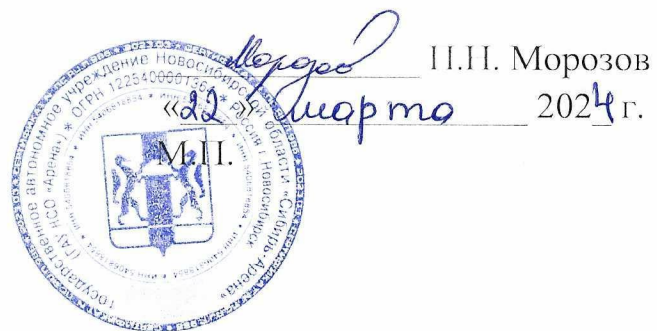 П.П. Морозов
«22» марта 2024 г.
М.П.
Государственное автономное учреждение Новосибирской области «Сибирь-Арена»
(ГАУ НСО «Арена») * ОГРН
Россия г. Новосибирск